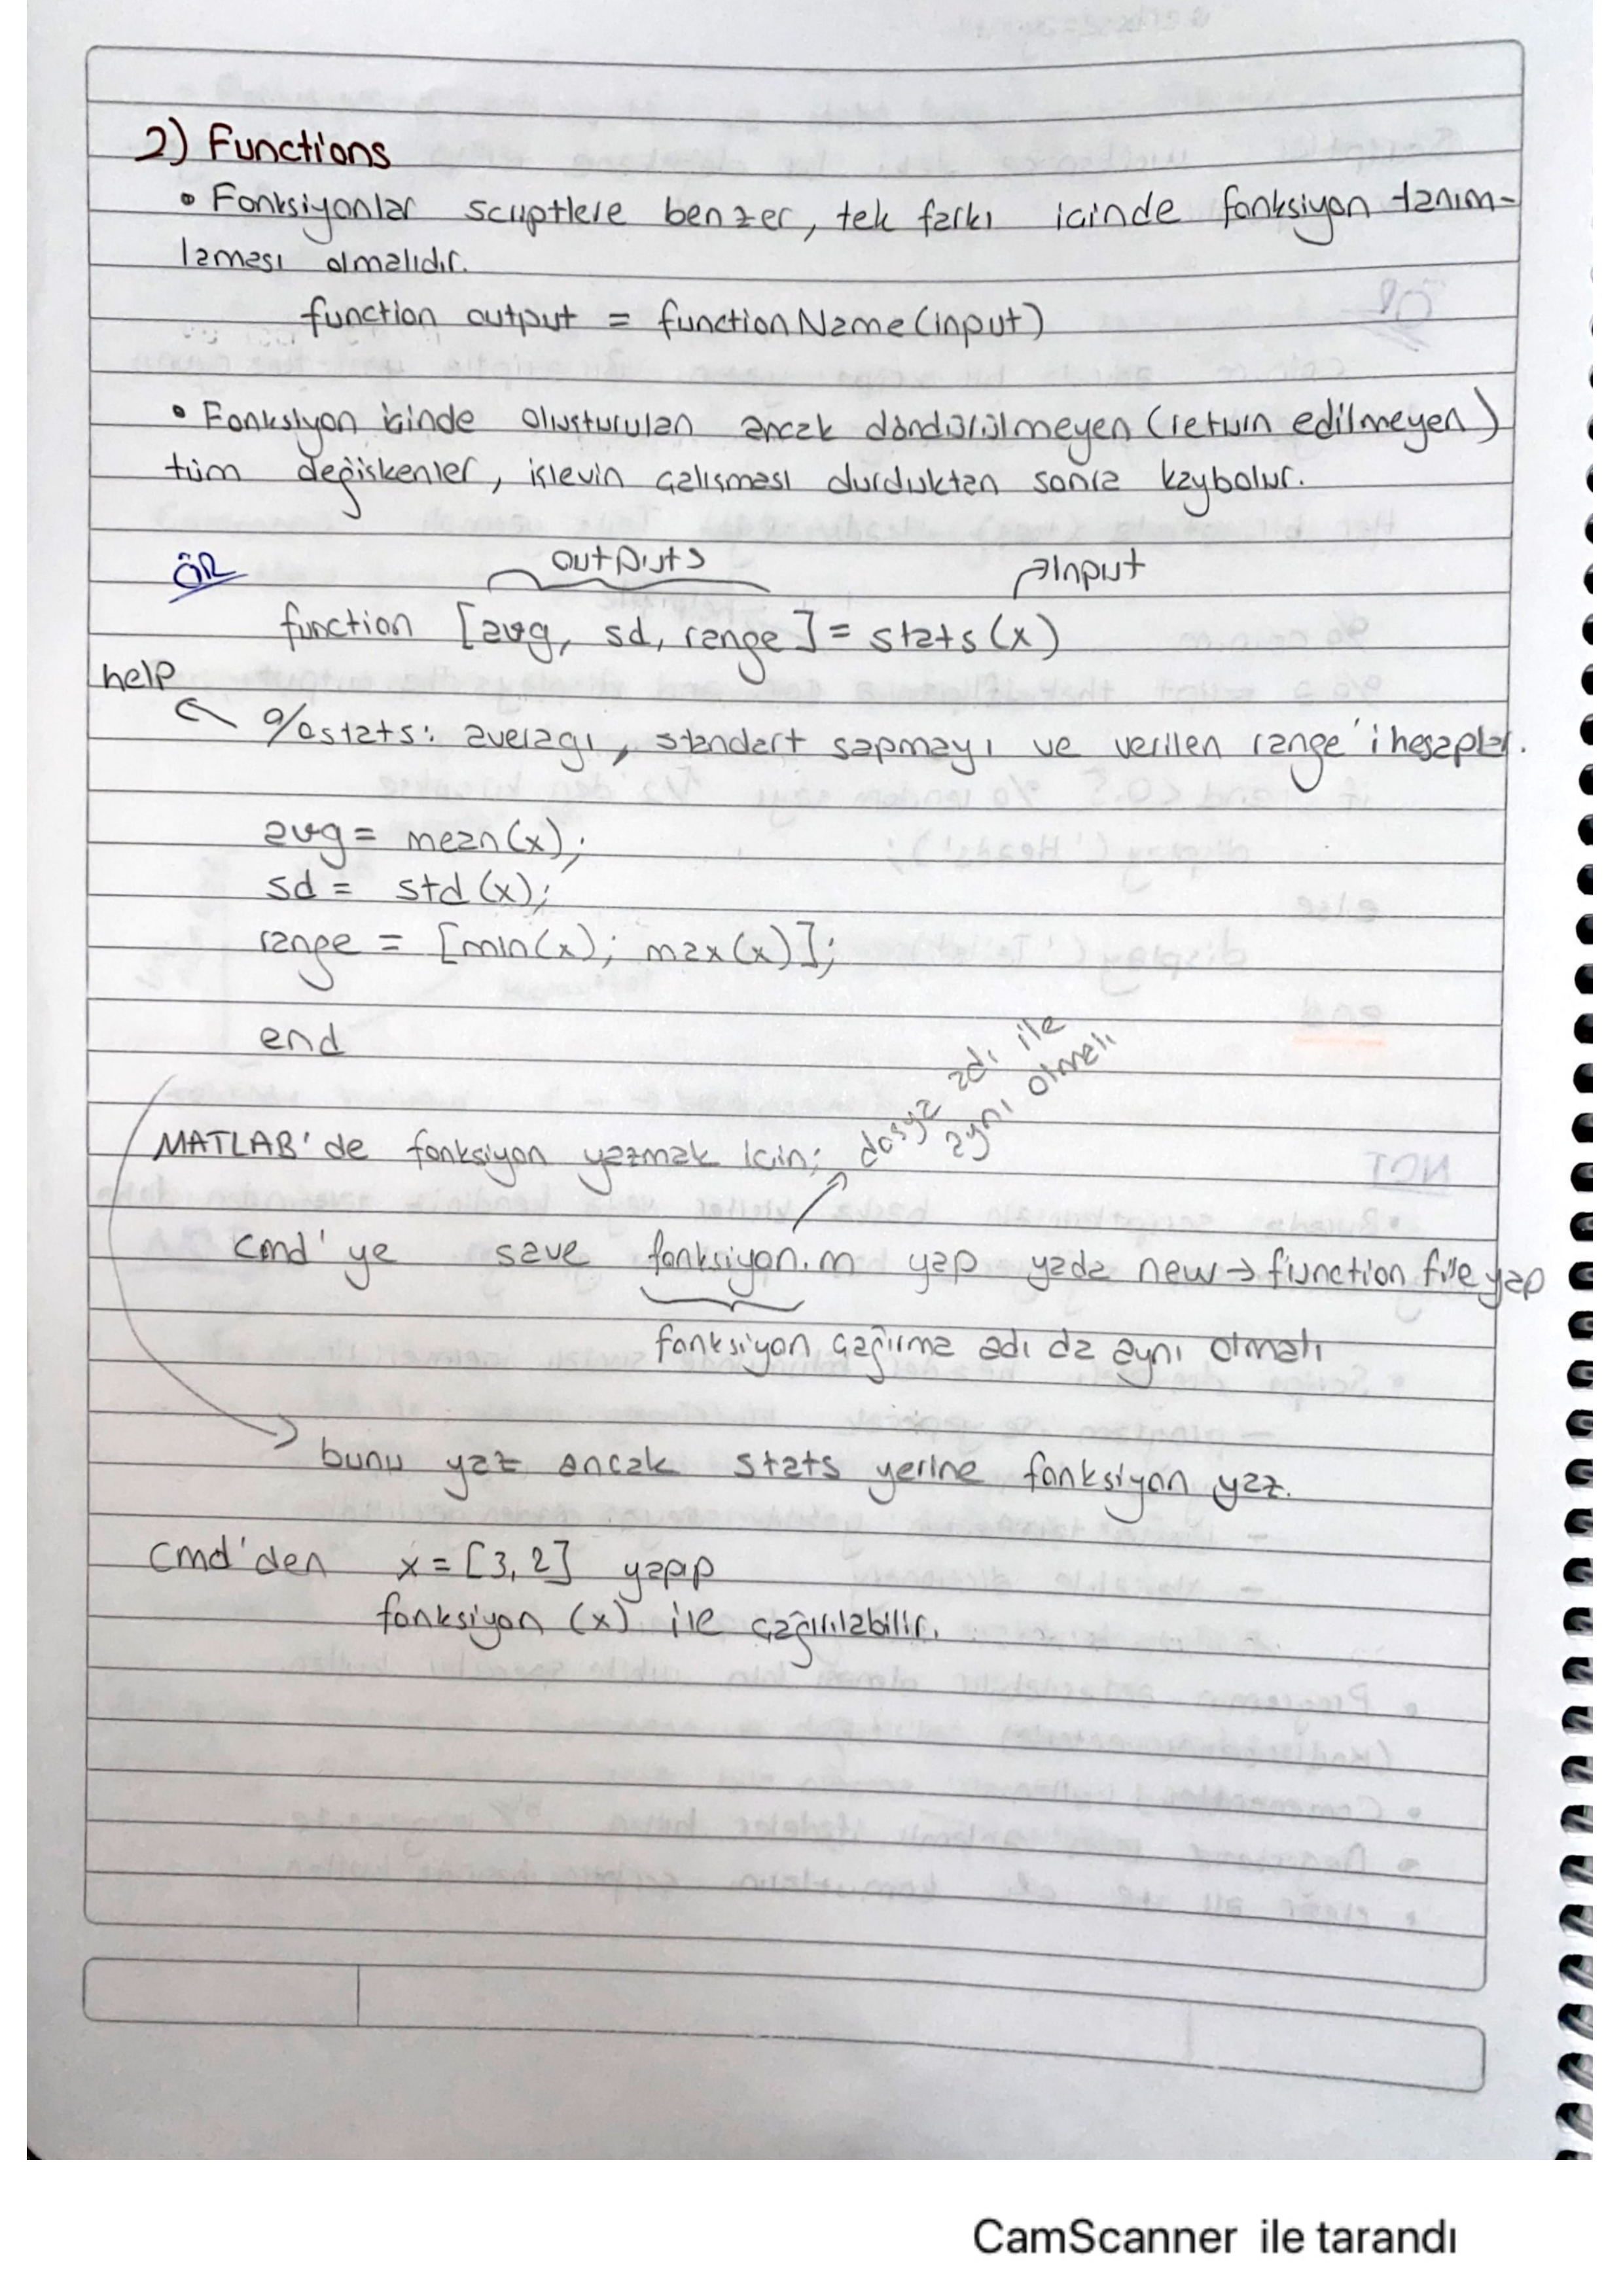 2) Functions
• Fonksiyonlar scriptlere benzer, tek farkı icinde fonksiyon tanım-
laması olmalıdır.
function output = functionName(input)
• Fonksiyon icinde olusturulan ancak döndürülmeyen (return edilmeyen)
tüm değiskenler, islevin calısması durduktan sonra kaybolur.
ÖR
outputs
input
function [avg, sd, range] = stats(x)
help
%stats: averagı, standart sapmayı ve verilen range'i hesaplar.
avg = mean(x);
sd = std(x);
range = [min(x); max(x)];
end
dosya adı ile
aynı olmalı
MATLAB'de fonksiyon yazmak icin;
cmd'ye save fonksiyon.m yap yada new → function file yap
fonksiyon çağırma adı da aynı olmalı
bunu yaz ancak stats yerine fonksiyon yaz.
Cmd'den x = [3, 2] yapıp
fonksiyon (x) ile çağırılabilir.
CamScanner ile tarandı